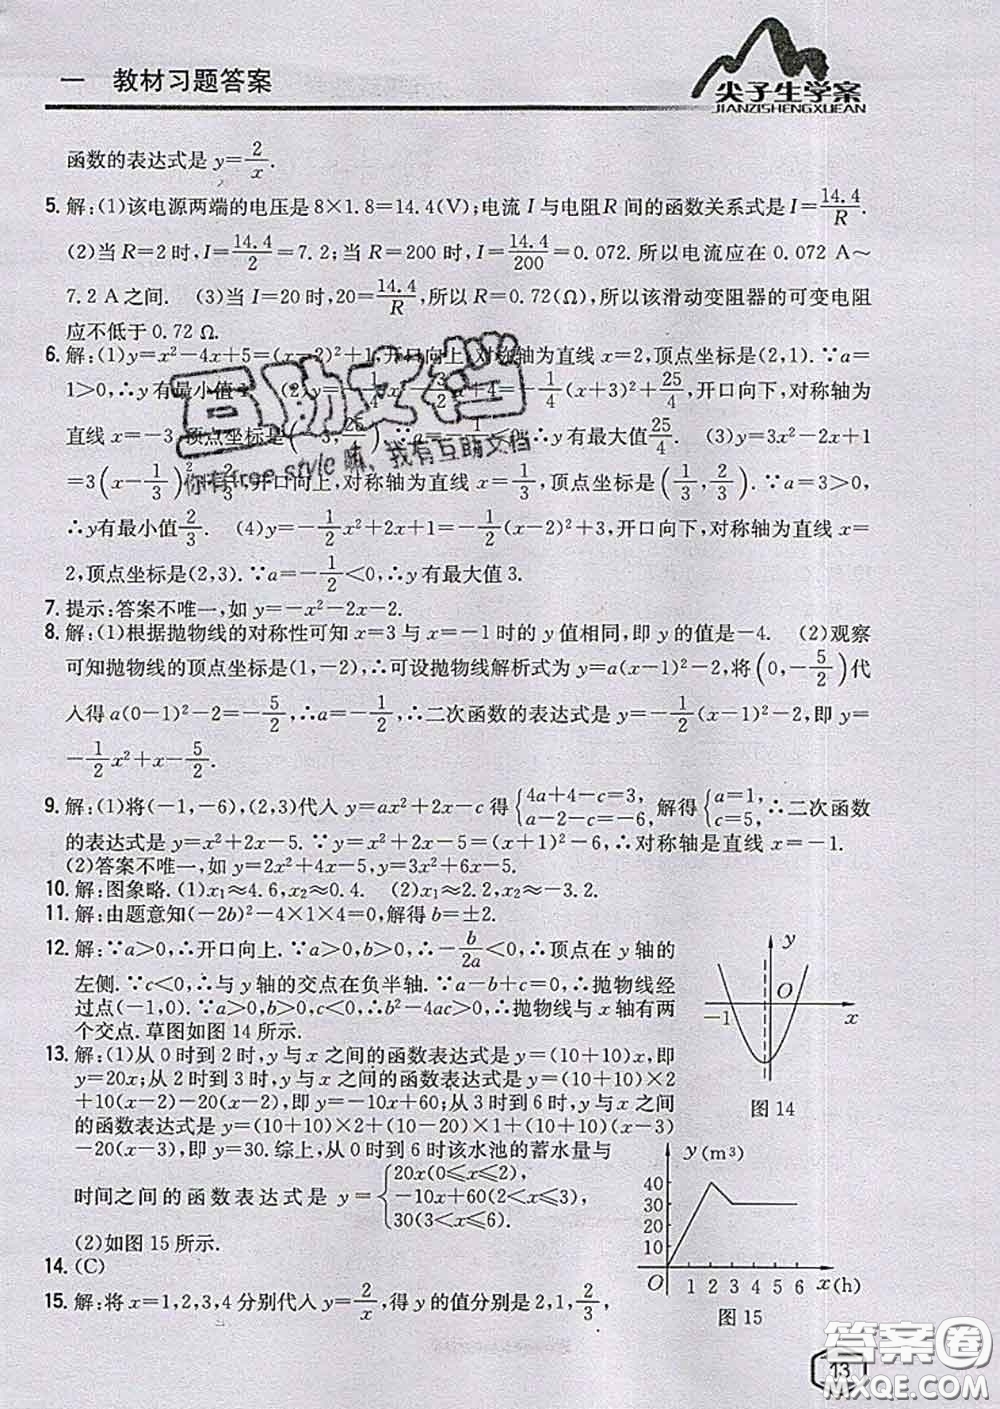 一 教材习题答案
尖子生学案
JIANZISHENGXUEAN
函数的表达式是 y=2/x.
5. 解:(1)该电源两端的电压是 8×1.8=14.4(V);电流 I 与电阻 R 间的函数关系式是 I=14.4/R.
(2)当 R=2 时,I=14.4/2=7.2;当 R=200 时,I=14.4/200=0.072.所以电流应在 0.072 A~
7.2 A之间. (3)当 I=20 时,20=14.4/R,所以 R=0.72(Ω),所以该滑动变阻器的可变电阻
应不低于 0.72 Ω.
6. 解:(1)y=x²-4x+5=(x-2)²+1,开口向上,对称轴为直线 x=2,顶点坐标是(2,1).∵a=
1>0,∴y有最小值 (2)y=- 1/4 x 3/2 x+4=-1/4(x+3)²+25/4,开口向下,对称轴为
直线 x=-3,顶点坐标是(-3,25/4).∵a=- 1/ <0,∴y 有最大值25/4. (3)y=3x²-2x+1
=3(x-1/3)²+2/3,开口向上,对称轴为直线 x=1/3,顶点坐标是(1/3,2/3).∵a=3>0,
∴y有最小值2/3. (4)y=-1/2x²+2x+1=-1/2(x-2)²+3,开口向下,对称轴为直线 x=
2,顶点坐标是(2,3).∵a=-1/2<0,∴y 有最大值 3.
7. 提示:答案不唯一,如 y=-x²-2x-2.
8. 解:(1)根据抛物线的对称性可知 x=3 与 x=-1 时的 y 值相同,即 y 的值是-4. (2)观察
可知抛物线的顶点坐标是(1,-2),∴可设抛物线解析式为 y=a(x-1)²-2,将(0,-5/2)代
入得 a(0-1)²-2=-5/2,∴a=-1/2,∴二次函数的表达式是 y=-1/2(x-1)²-2,即 y=
-1/2x²+x-5/2.
9. 解:(1)将(-1,-6),(2,3)代入 y=ax²+2x-c 得{4a+4-c=3, a-2-c=-6,解得{a=1, c=5,∴二次函数
的表达式是 y=x²+2x-5.∵y=x²+2x-5=(x+1)²-6,∴对称轴是直线 x=-1.
(2)答案不唯一,如 y=2x²+4x-5,y=3x²+6x-5.
10. 解:图象略.(1)x₁≈4.6,x₂≈0.4. (2)x₁≈2.2,x₂≈-3.2.
11. 解:由题意知(-2b)²-4×1×4=0,解得 b=±2.
12. 解:∵a>0,∴开口向上.∵a>0,b>0,∴-b/2a<0,∴顶点在 y 轴的
左侧.∵c<0,∴与 y 轴的交点在负半轴.∵a-b+c=0,∴抛物线经
过点(-1,0).∵a>0,b>0,c<0,∴b²-4ac>0,∴抛物线与 x 轴有两
个交点.草图如图 14 所示.
y
O
-1
x
图 14
13. 解:(1)从 0 时到 2 时,y 与 x 之间的函数表达式是 y=(10+10)x,即
y=20x;从 2 时到 3 时,y 与 x 之间的函数表达式是 y=(10+10)×2
+10(x-2)-20(x-2),即 y=-10x+60;从 3 时到 6 时,y 与 x 之间
的函数表达式是 y=(10+10)×2+(10-20)×1+(10+10)(x-3)
-20(x-3),即 y=30.综上,从 0 时到 6 时该水池的蓄水量与
时间之间的函数表达式是 y={20x(0⩽x⩽2), -10x+60(2<x⩽3), 30(3<x⩽6).
(2)如图 15 所示.
y(m³)
40
30
20
10
O 1 2 3 4 5 6 x(h)
图 15
14. (C)
15. 解:将 x=1,2,3,4 分别代入 y=2/x,得 y 的值分别是 2,1,2/3,
13
互助文档
你有free style嘛、我有互助文档
答案圈
MXQE.COM